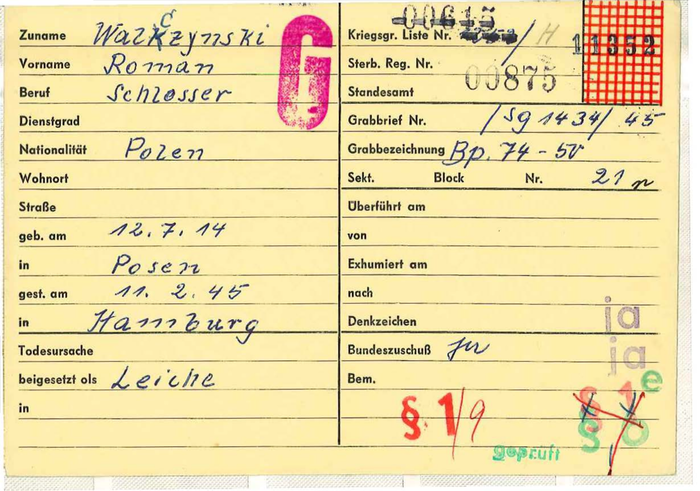 Zuname Walczynski
Vorname Roman
Beruf Schlosser
Dienstgrad
Nationalität Polen
Wohnort
Straße
geb. am 12.7.14
in Posen
gest. am 11.2.45
in Hamburg
Todesursache
beigesetzt als Leiche
in
G
00615
Kriegsgr. Liste Nr. /H
11352
Sterb. Reg. Nr. 00875
Standesamt
Grabbrief Nr. /Sg 1434/45
Grabbezeichnung Bp. 74-50
Sekt. Block Nr. 21
Überführt am
von
Exhumiert am
nach
Denkzeichen
ja
Bundeszuschuß ja
ja
Bem.
§ 1/9
§ 1 e
§
geprüft